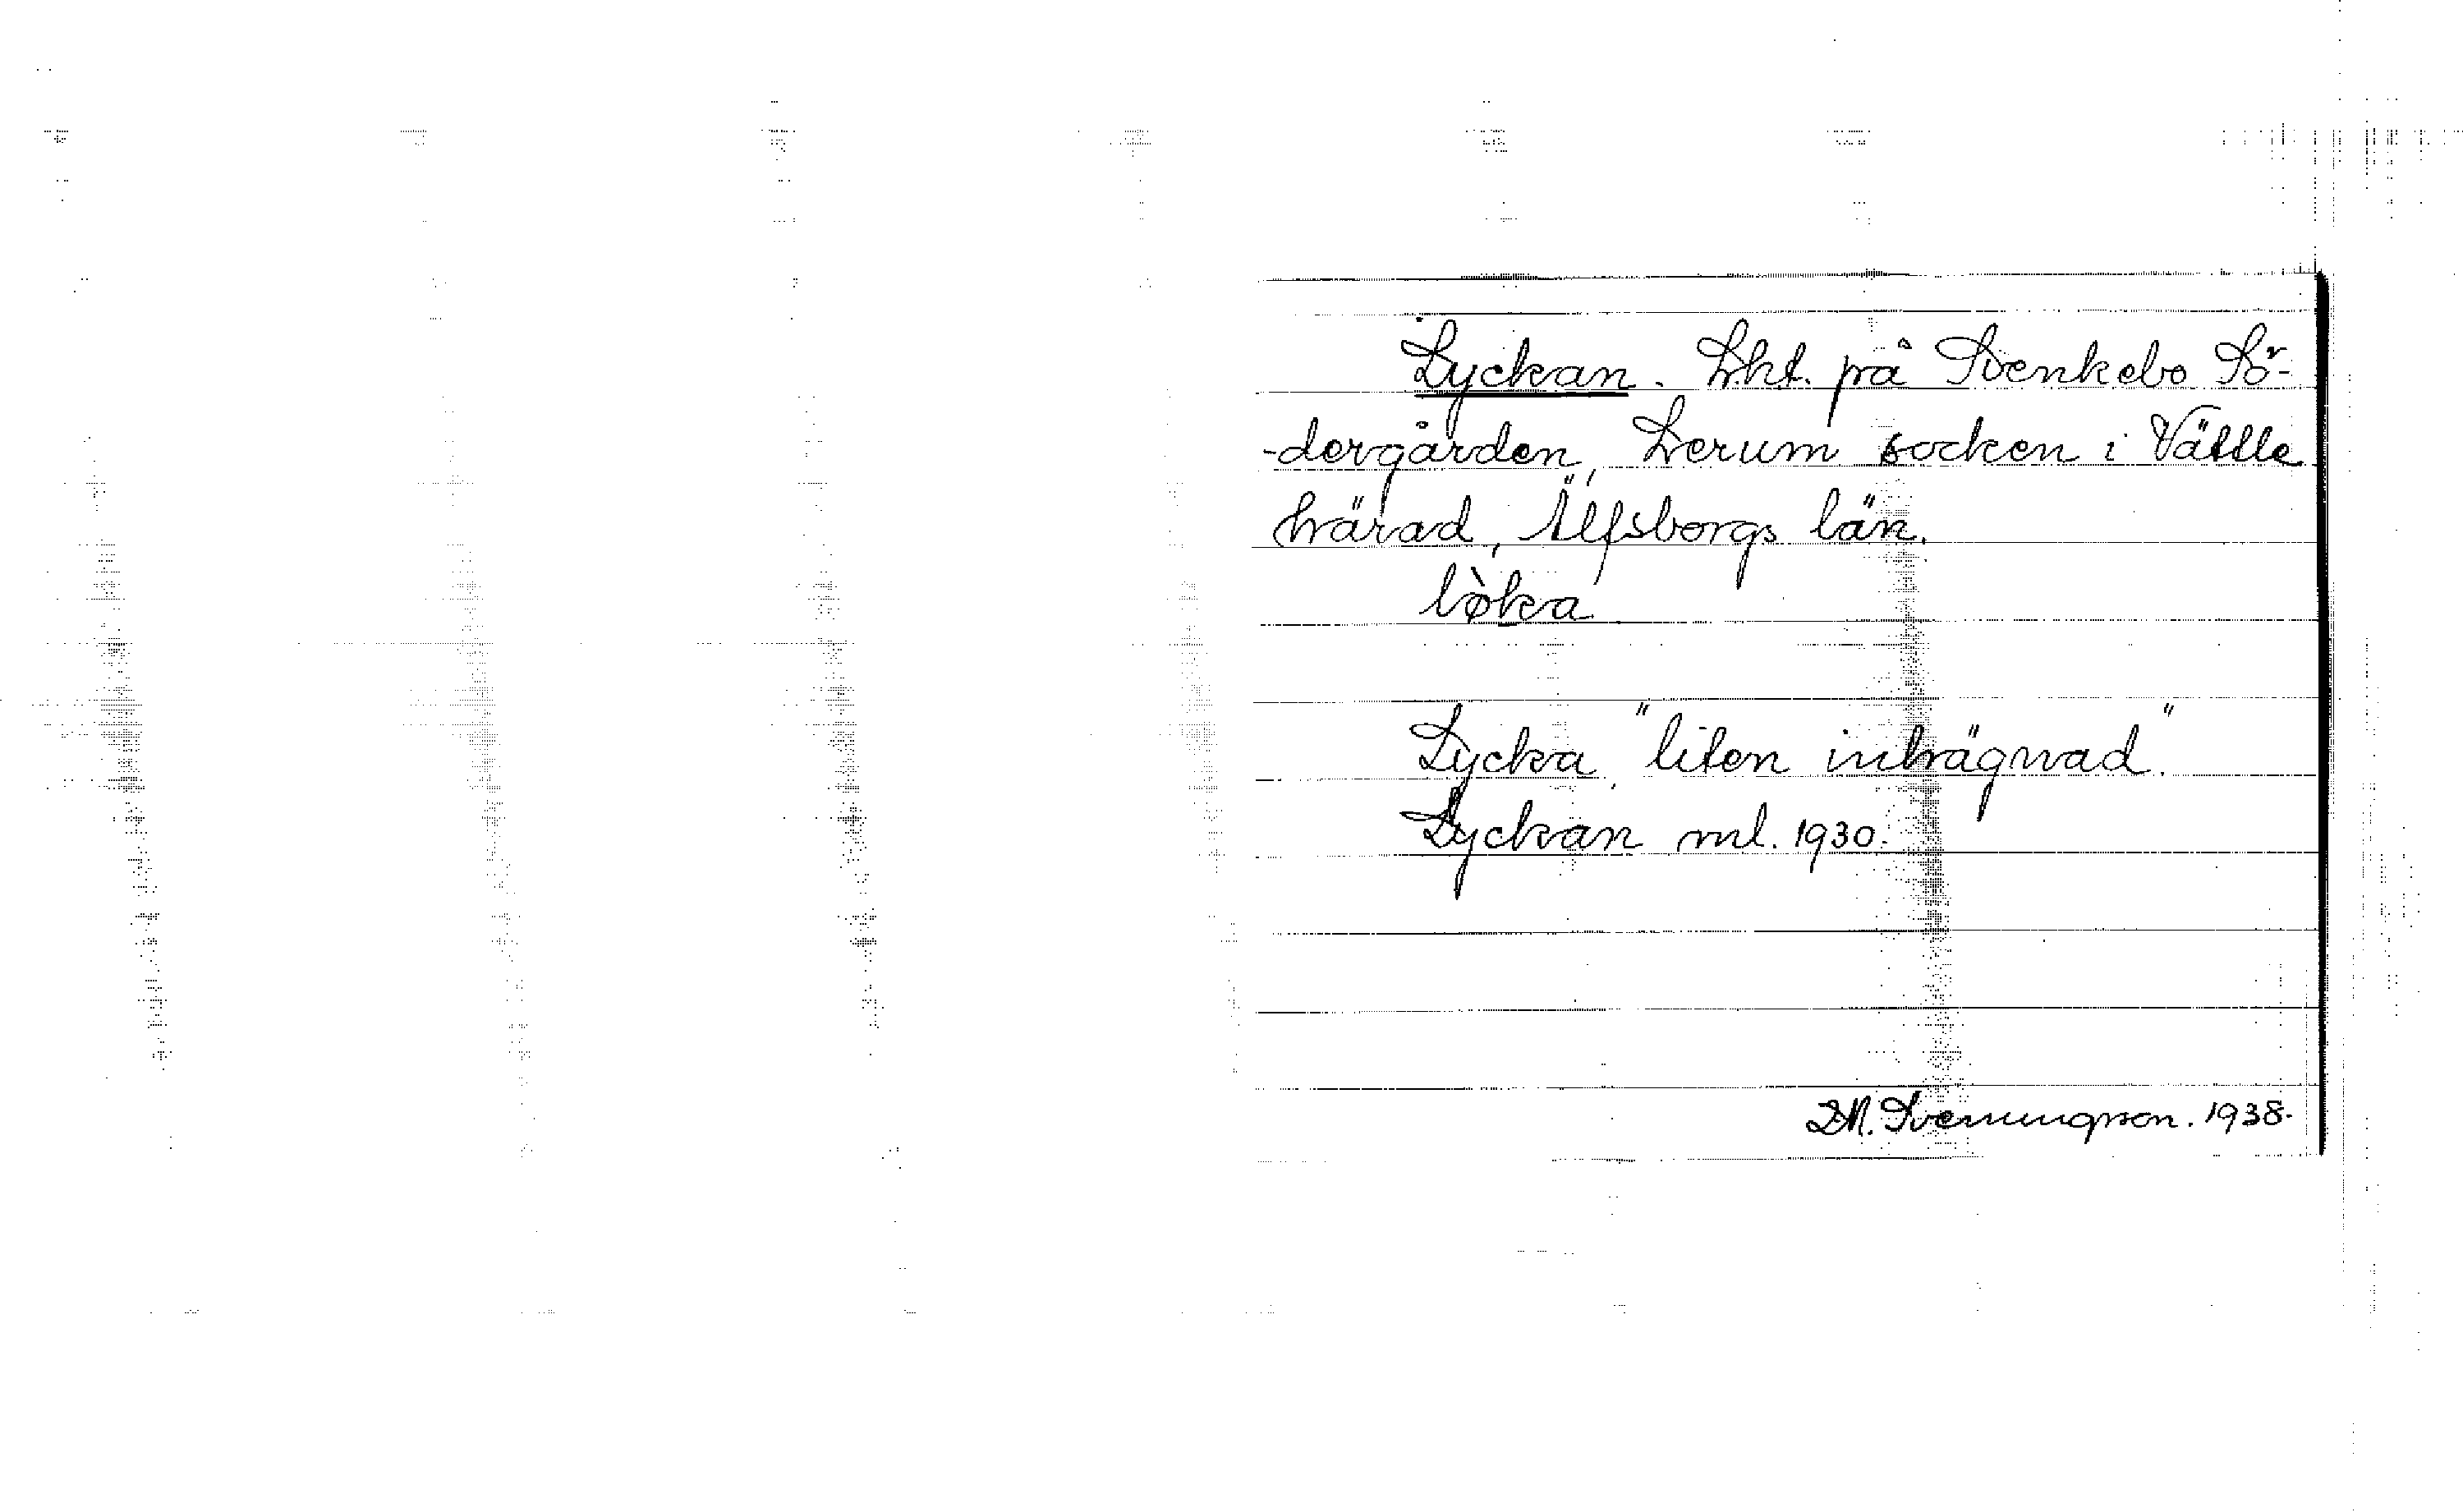 Lyckan. Lht. på Svenkebo Sö-
-dergården, Lerum socken i Vättle
härad, Älfsborgs län.
lø̀ka
Lycka, "liten inhägnad."
Lyckan ml. 1930.
D.N. Svenungsson. 1938.